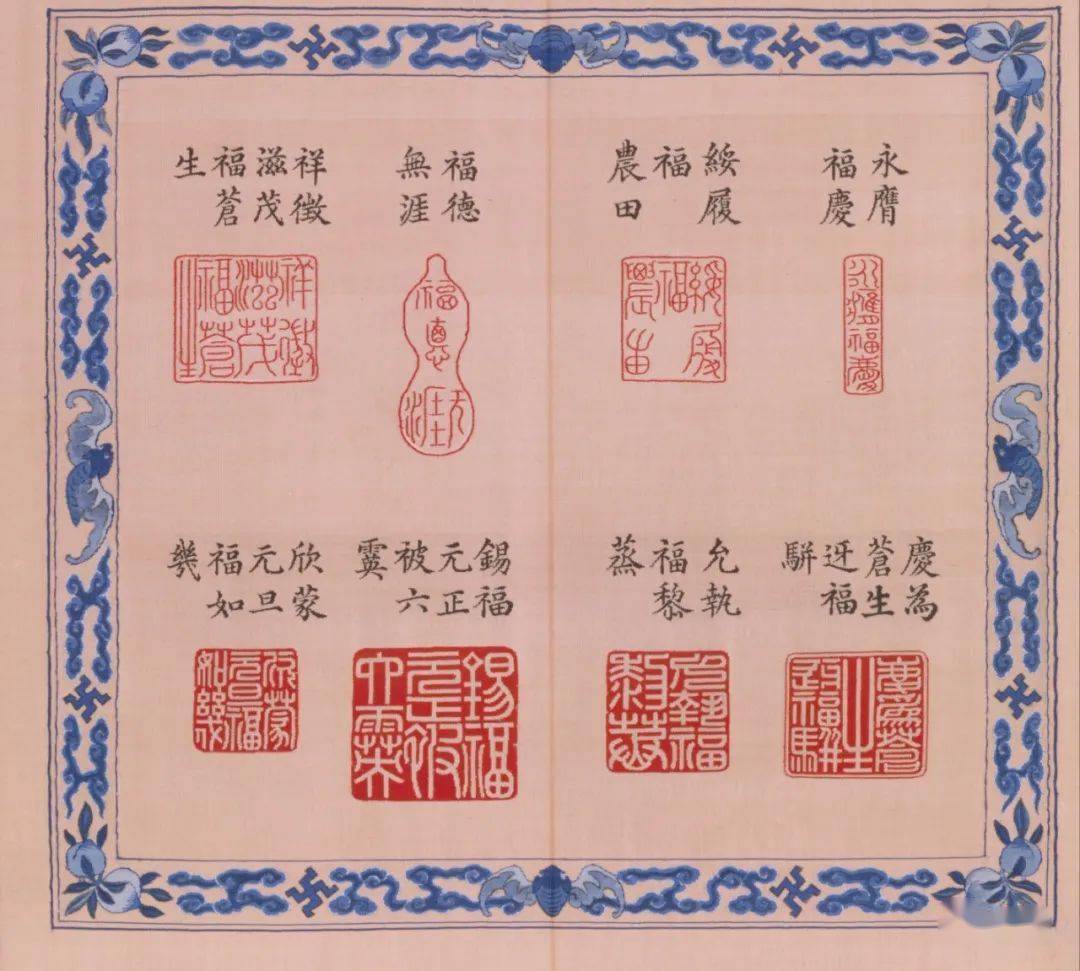 永膺
福慶
永膺福慶
綏履
福
農田
綏履
福
農田
福德
無涯
福德
無涯
祥徵
滋茂
福蒼
生
祥徵
滋茂
福蒼
生
慶為
蒼生
迓福
駢
慶為蒼
生
迓福駢
允執
福黎
蒸
允執福
黎蒸
錫福
元正
被六
霙
錫福
元正被
六霙
欣蒙
元旦
福如
幾
欣蒙
元旦福
如幾